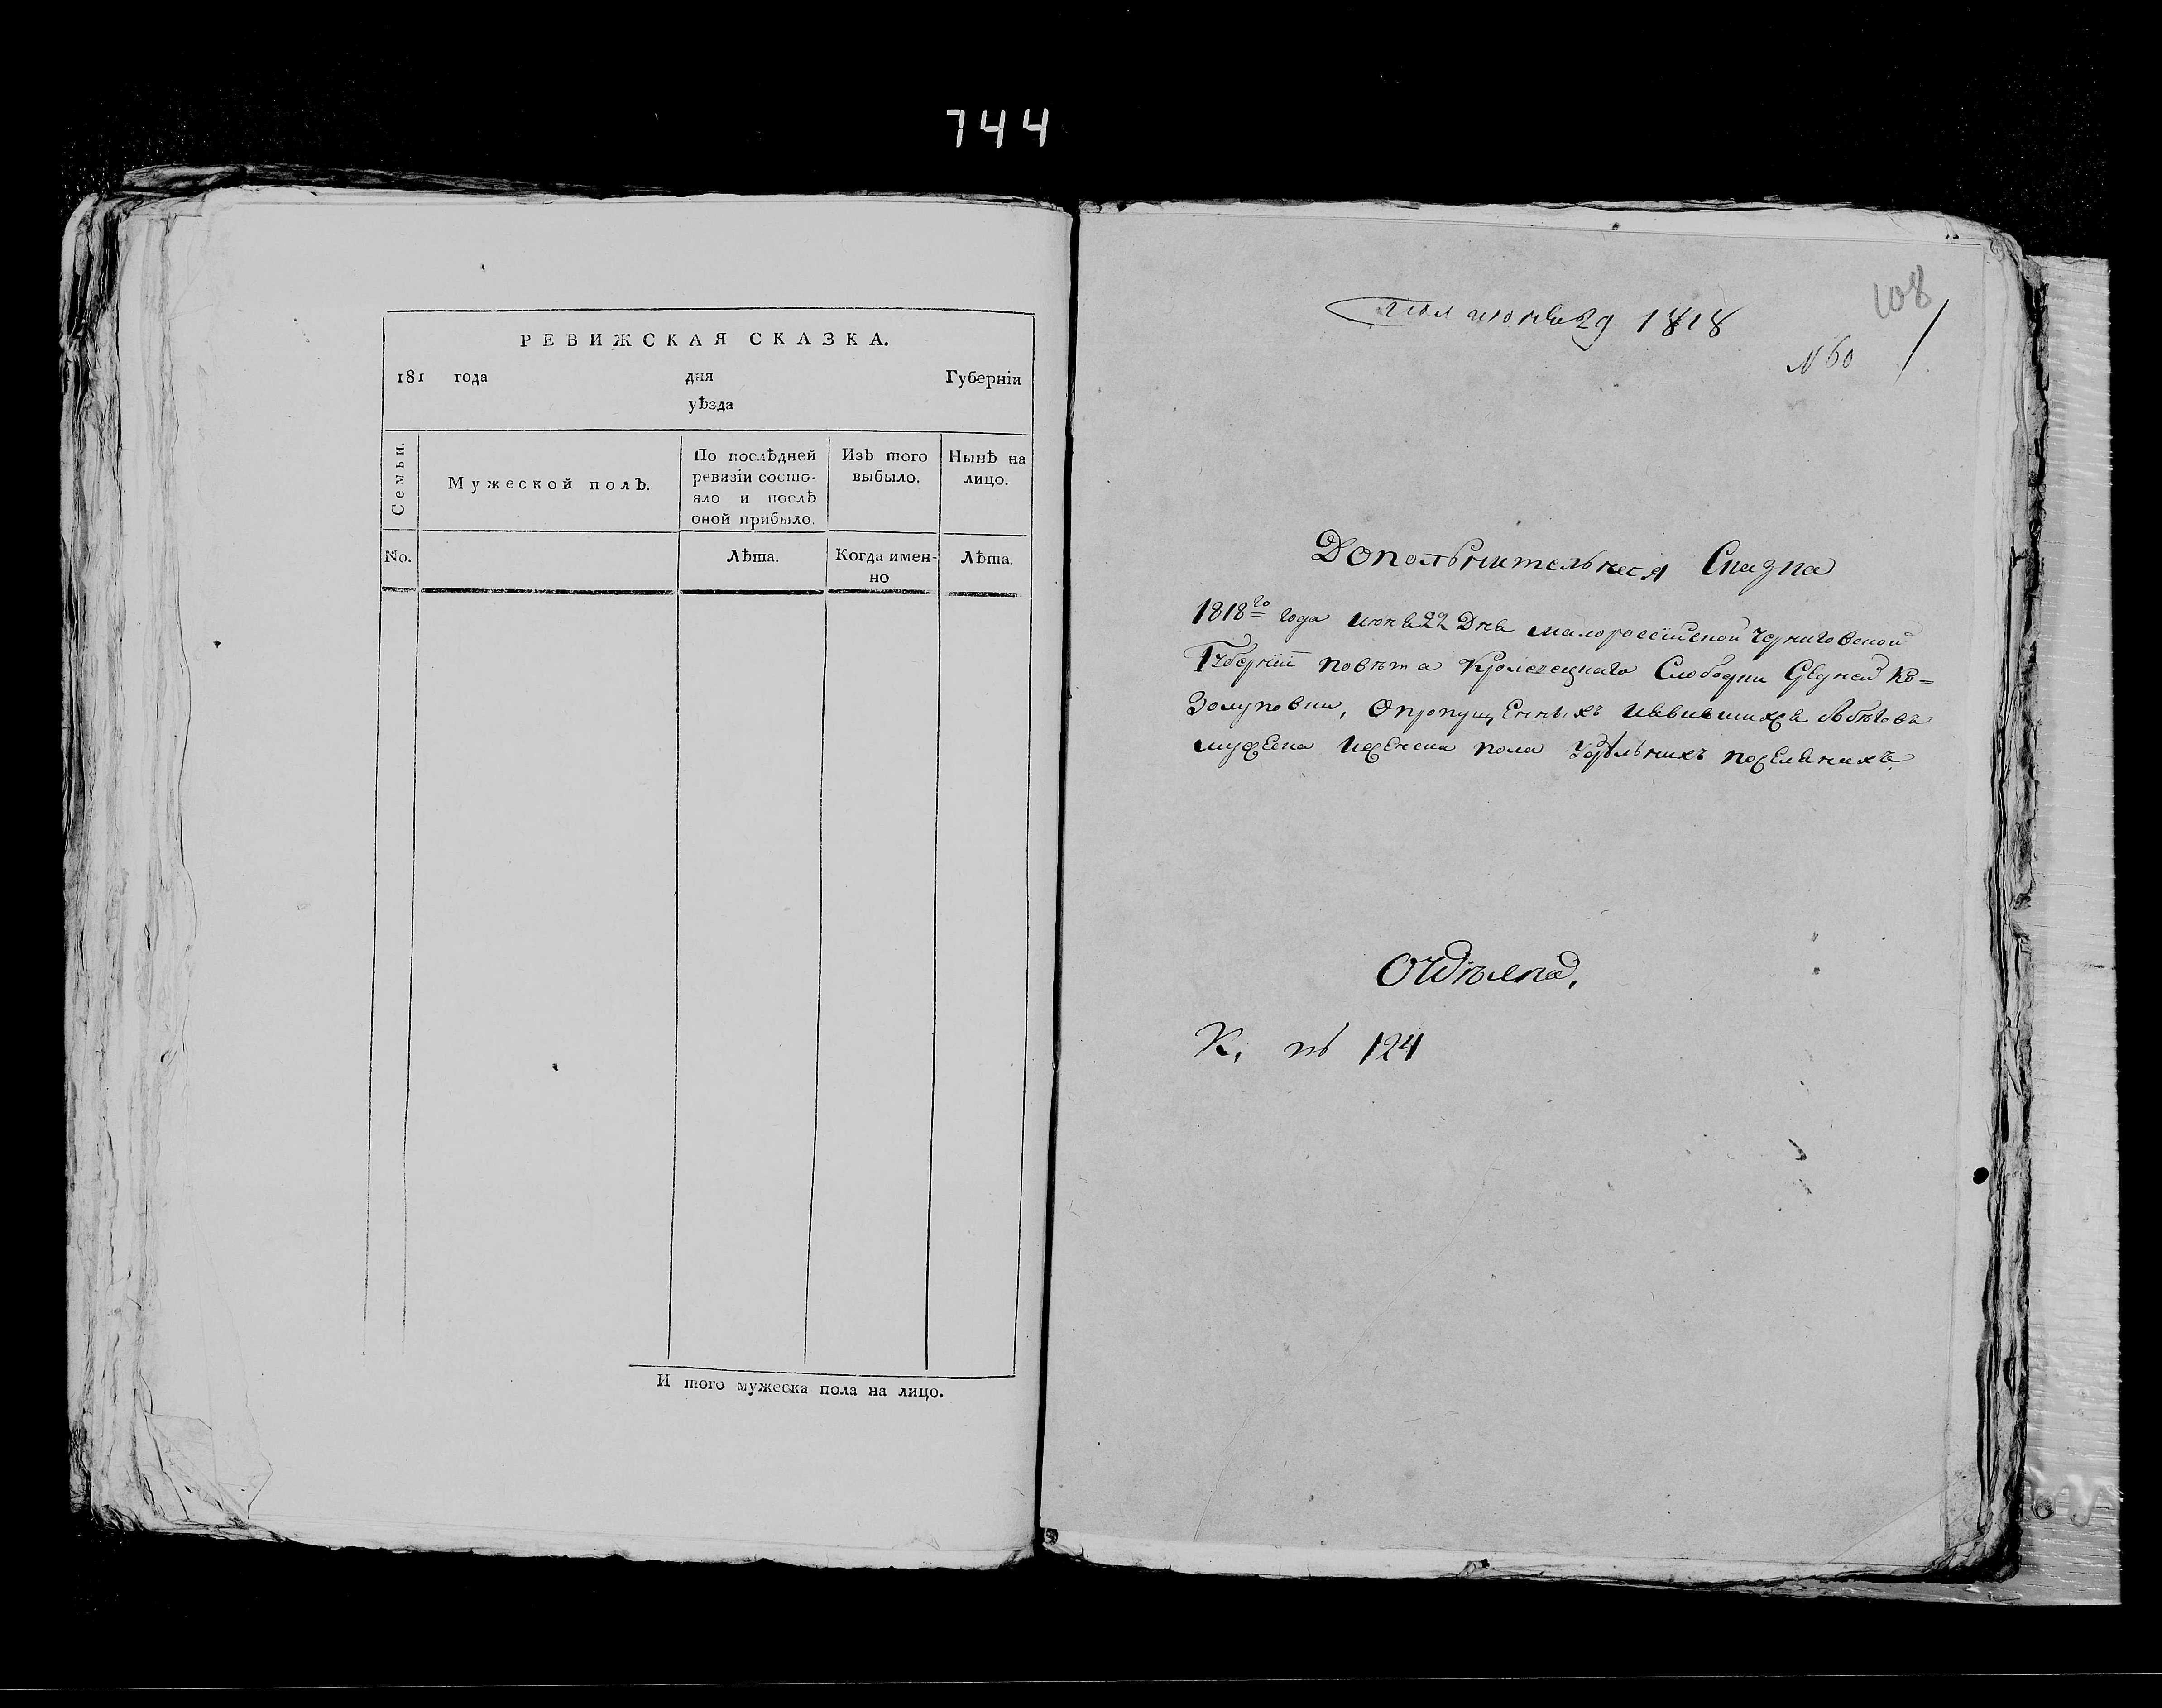 744
РЕВИЖСКАЯ СКАЗКА.
181 года дня Губерніи
уѣзда
Семьи.
Мужеской полъ.
По послѣдней
ревизіи состо-
яло и послѣ
оной прибыло.
Изъ того
выбыло.
Нынѣ на
лицо.
No.
Лѣта.
Когда имен-
но
Лѣта.
И того мужеска пола на лицо.
108
июня 29 1818
№ 60
Дополнительная Сказка
1818го года июня 22 Дня малороссійской Черниговской
Губерніи повѣта Кролевецкаго Слободки
мужеска и женска пола
К. № 124